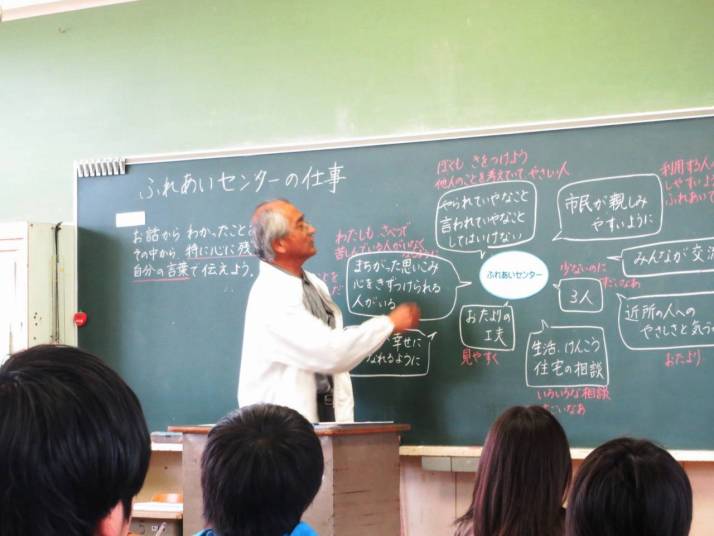 ふれあいセンターの仕事
お話から わかったこと
その中から 特に心に残
自分の言葉で伝えよう。
ぼくも きをつけよう
他人のことを考えていて やさしい人
やられていやなこと
言われていやなこと
してはいけない
わたしも さべつで
苦しんでいる人がいなく
まちがった思いこみ
心をきずつけられる
人がいる
幸せに
なれるように
おたよりの
工夫
見やすく
ふれあいセンター
市民が親しみ
やすいように
利用する人
しやすいよう
ふれあいて
みんなが交流
少ないのに
すごいなあ
3人
近所の人への
やさしさと気づ
おたより
生活、けんこう
住宅の相談
いろいろな相談
すごいなあ